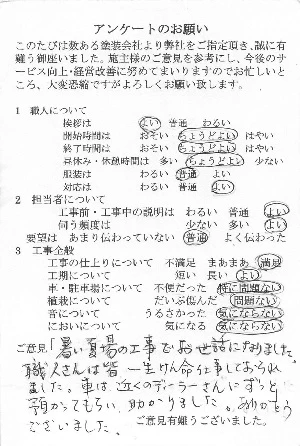 アンケートのお願い
このたびは数ある塗装会社より弊社をご指定頂き、誠に有
難う御座いました。施主様のご意見を参考にし、今後のサ
ービス向上・経営改善に努めてまいりますのでお忙しいと
ころ、大変恐縮ですがよろしくお願い致します。
1 職人について
挨拶は よい 普通 わるい
開始時間は おそい ちょうどよい はやい
終了時間は おそい ちょうどよい はやい
昼休み・休憩時間は 多い ちょうどよい 少ない
服装は わるい 普通 よい
対応は わるい 普通 よい
2 担当者について
工事前・工事中の説明は わるい 普通 よい
伺う頻度は 少ない 多い よい
要望は あまり伝わっていない 普通 よく伝わった
3 工事全般
工事の仕上りについて 不満足 まあまあ 満足
工期について 短い 長い よい
車・駐車場について 不便だった 特に問題ない
植栽について だいぶ傷んだ 問題ない
音について うるさかった 気にならない
においについて 気になる 気にならない
ご意見「暑い夏場の工事でお世話になりました。
職人さんは皆一生けん命仕事しておられ
ました。車は近くのディーラーさんにずっと
預かってもらい助かりました。ありがとう
ございました。 ご意見有難うございました。